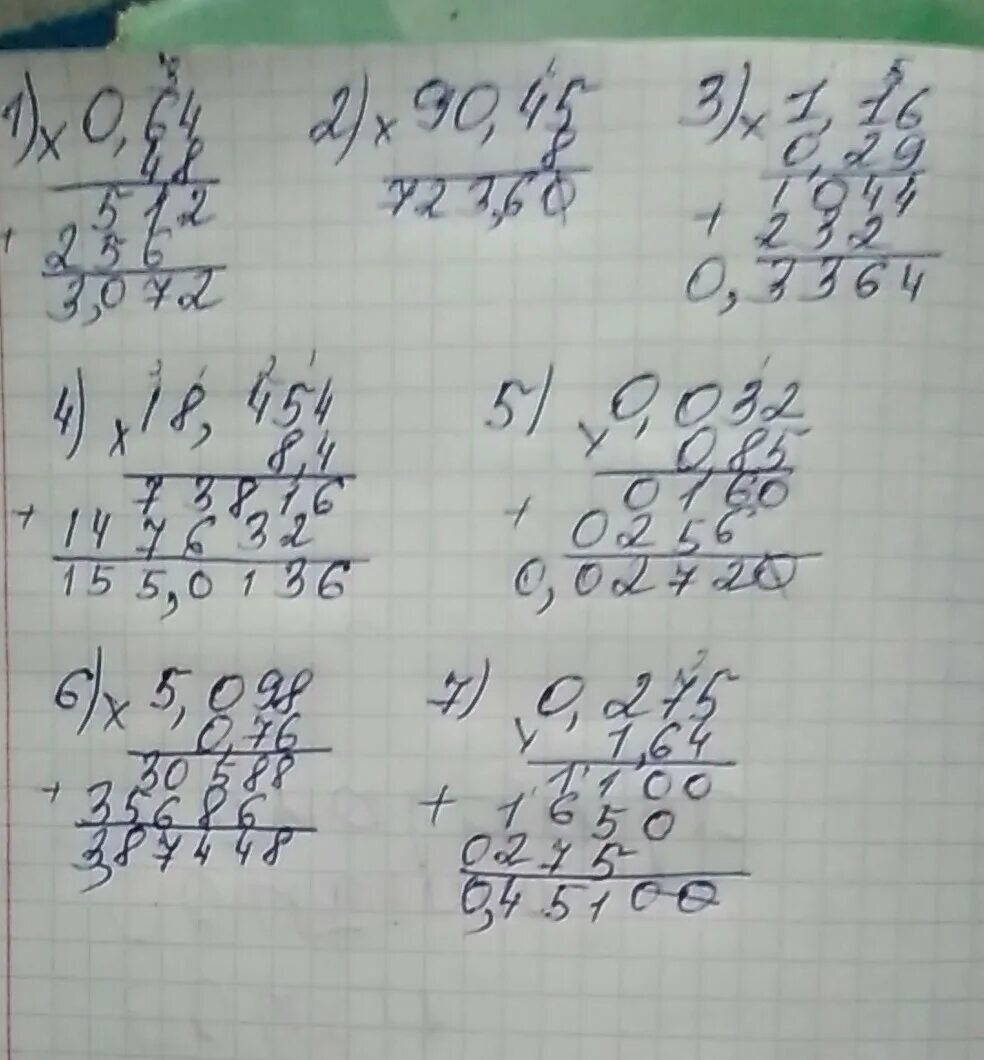 1) x 0,64
48
512
+ 256
3,072
2) x 90,45
8
723,60
3) x 1,16
0,29
1044
+ 232
0,3364
4) x 18,454
8,4
73816
+ 147632
155,0136
5) x 0,032
0,85
0160
+ 0256
0,02720
6) x 5,098
0,76
30588
+ 35686
3,87448
7) x 0,275
1,64
1100
+ 1650
0275
0,45100